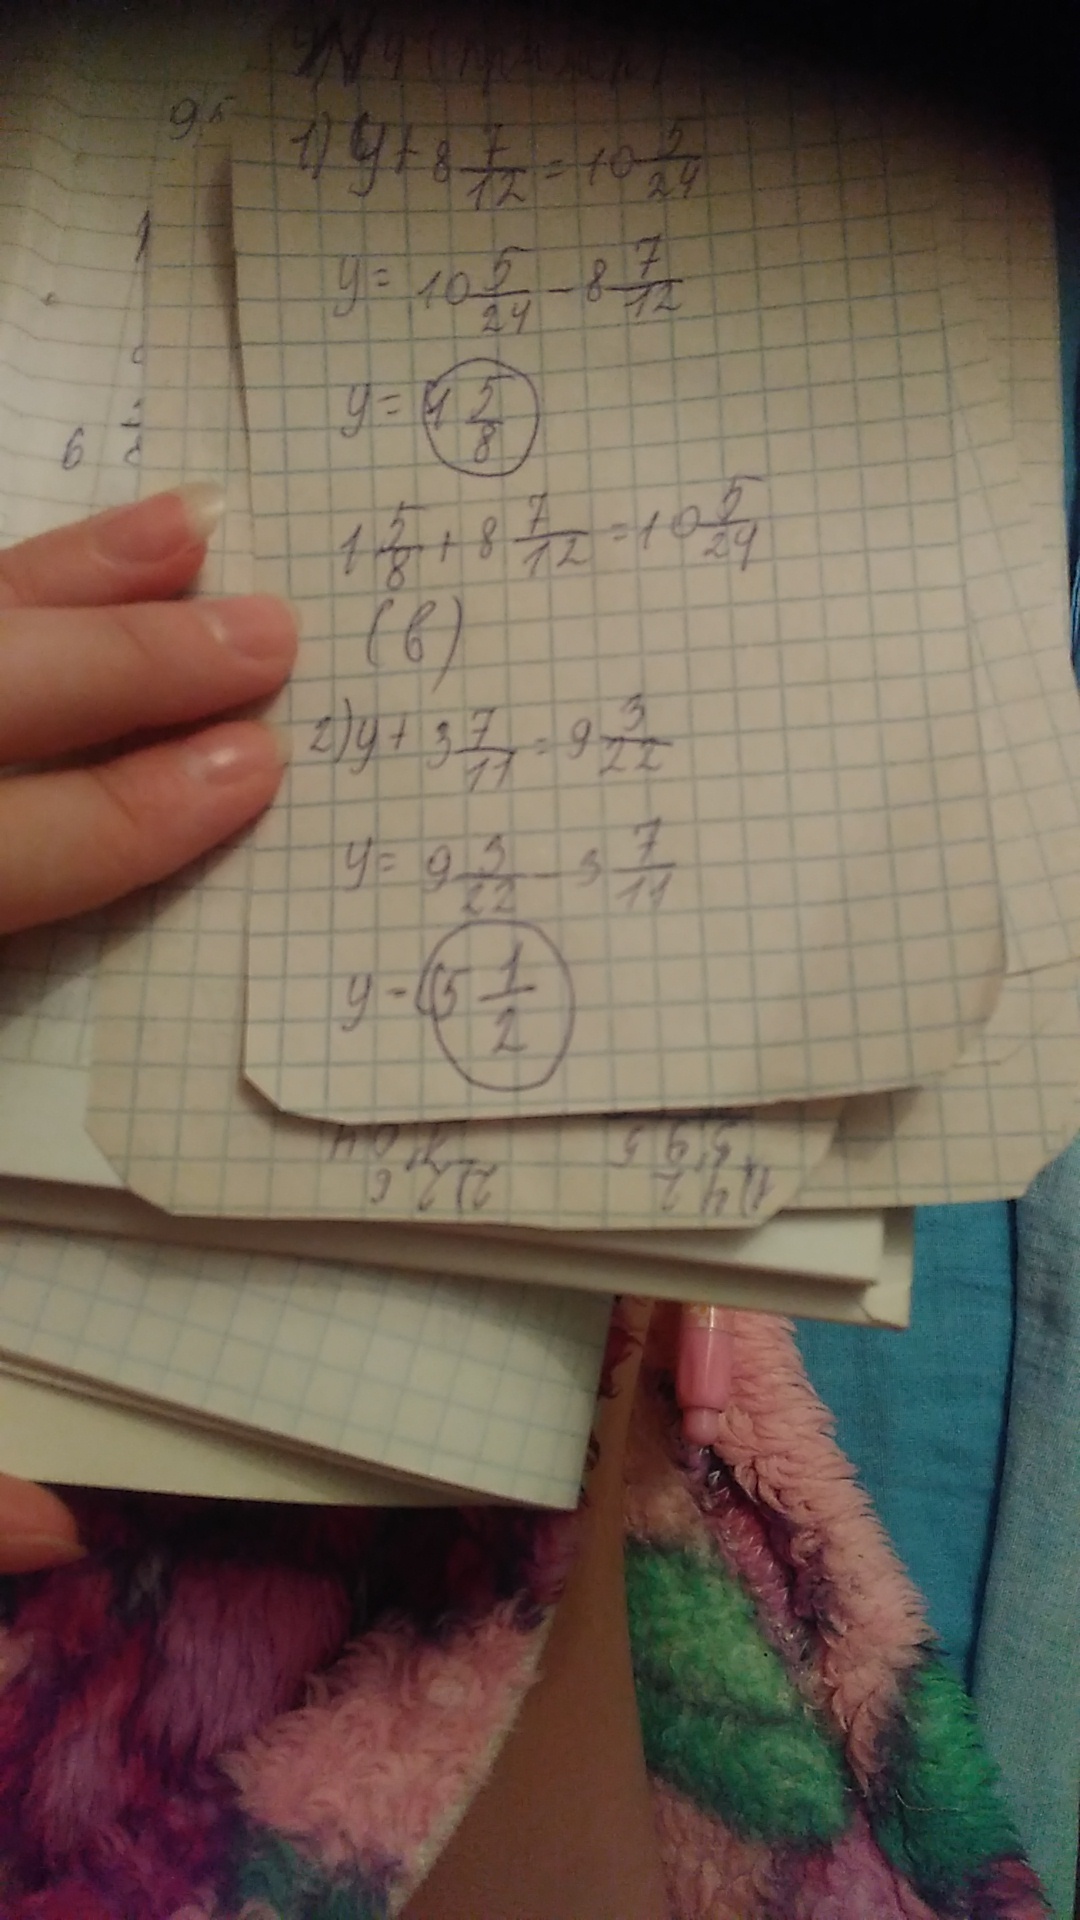 1) y + 8 7/12 = 10 5/24
y = 10 5/24 - 8 7/12
y = 1 5/8
1 5/8 + 8 7/12 = 10 5/24
(в)
2) y + 3 7/11 = 9 3/22
y = 9 3/22 - 3 7/11
y - 5 1/2
6